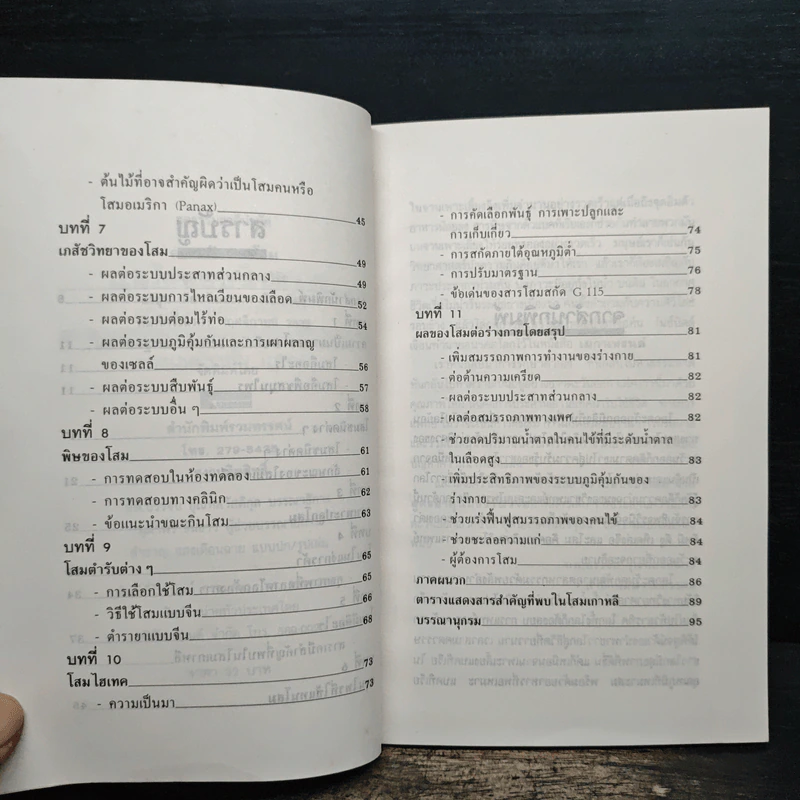 - ต้นไม้ที่อาจสำคัญผิดว่าเป็นโสมคนหรือ
โสมอเมริกา (Panax) 45
บทที่ 7
เภสัชวิทยาของโสม 49
- ผลต่อระบบประสาทส่วนกลาง 49
- ผลต่อระบบการไหลเวียนของเลือด 52
- ผลต่อระบบต่อมไร้ท่อ 54
- ผลต่อระบบภูมิคุ้มกันและการเผาผลาญ
ของเซลล์ 56
- ผลต่อระบบสืบพันธุ์ 57
- ผลต่อระบบอื่น ๆ 58
บทที่ 8
พิษของโสม 61
- การทดสอบในห้องทดลอง 61
- การทดสอบทางคลินิก 62
- ข้อแนะนำขณะกินโสม 63
บทที่ 9
โสมตำรับต่าง ๆ 65
- การเลือกใช้โสม 66
- วิธีใช้โสมแบบจีน 68
- ตำรายาแบบจีน
บทที่ 10 73
โสมไฮเทค 73
- ความเป็นมา
- การคัดเลือกพันธุ์ การเพาะปลูกและ
การเก็บเกี่ยว 74
- การสกัดภายใต้อุณหภูมิต่ำ 75
- การปรับมาตรฐาน 76
- ข้อเด่นของสารโสมสกัด G 115 78
บทที่ 11
ผลของโสมต่อร่างกายโดยสรุป 81
- เพิ่มสมรรถภาพการทำงานของร่างกาย 81
- ต่อต้านความเครียด 82
- ผลต่อระบบประสาทส่วนกลาง 82
- ผลต่อสมรรถภาพทางเพศ 82
- ช่วยลดปริมาณน้ำตาลในคนไข้ที่มีระดับน้ำตาล
ในเลือดสูง 83
- เพิ่มประสิทธิภาพของระบบภูมิคุ้มกันของ
ร่างกาย 83
- ช่วยเร่งฟื้นฟูสมรรถภาพของคนไข้ 84
- ช่วยชะลอความแก่ 84
- ผู้ต้องการโสม 84
ภาคผนวก 86
ตารางแสดงสารสำคัญที่พบในโสมเกาหลี 89
บรรณานุกรม 95